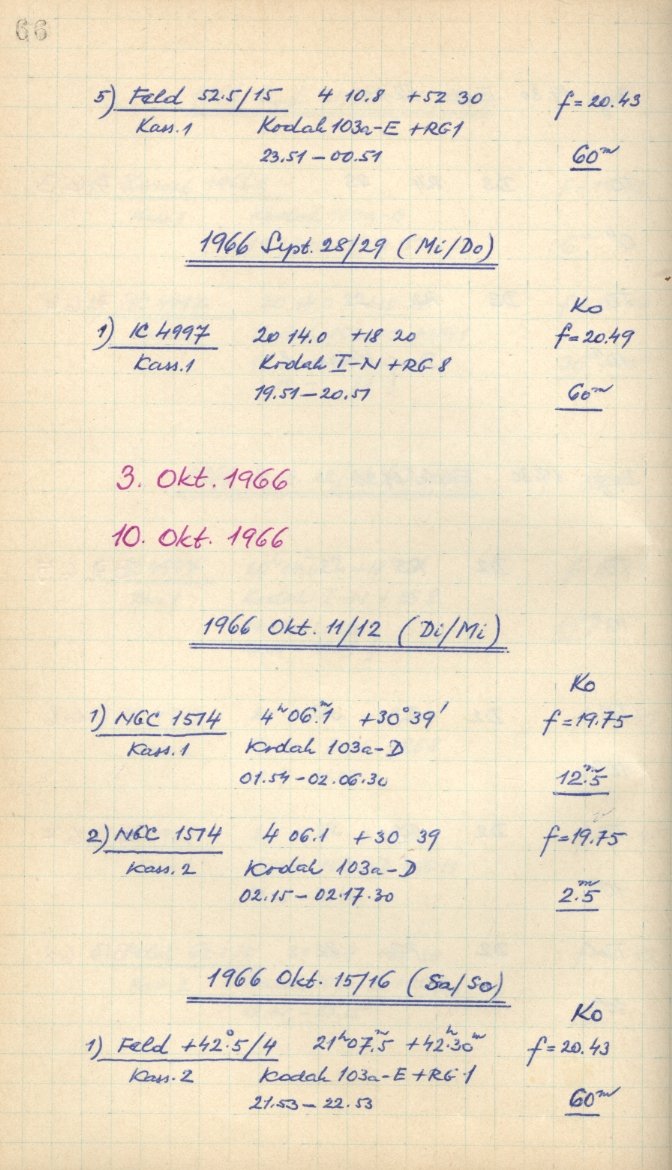 66
5) Feld 52.5/15 4 10.8 +52 30 f=20.43
Kass.1 Kodak 103a-E +RG1
23.51 – 00.51 60ᵐ
1966 Sept. 28/29 (Mi/Do)
Ko
1) IC 4997 20 14.0 +18 20 f=20.49
Kass.1 Kodak I-N +RG 8
19.51 – 20.51 60ᵐ
3. Okt. 1966
10. Okt. 1966
1966 Okt. 11/12 (Di/Mi)
Ko
1) NGC 1514 4ʰ06.ᵐ1 +30°39' f=19.75
Kass.1 Kodak 103a-D
01.54 – 02.06.30 12.ᵐ5
2) NGC 1514 4 06.1 +30 39 f=19.75
Kass.2 Kodak 103a-D
02.15 – 02.17.30 2.ᵐ5
1966 Okt. 15/16 (Sa/So)
Ko
1) Feld +42°.5/4 21ʰ07.ᵐ5 +42ʰ.30ᵐ f=20.43
Kass.2 Kodak 103a-E +RG 1
21.53 – 22.53 60ᵐ